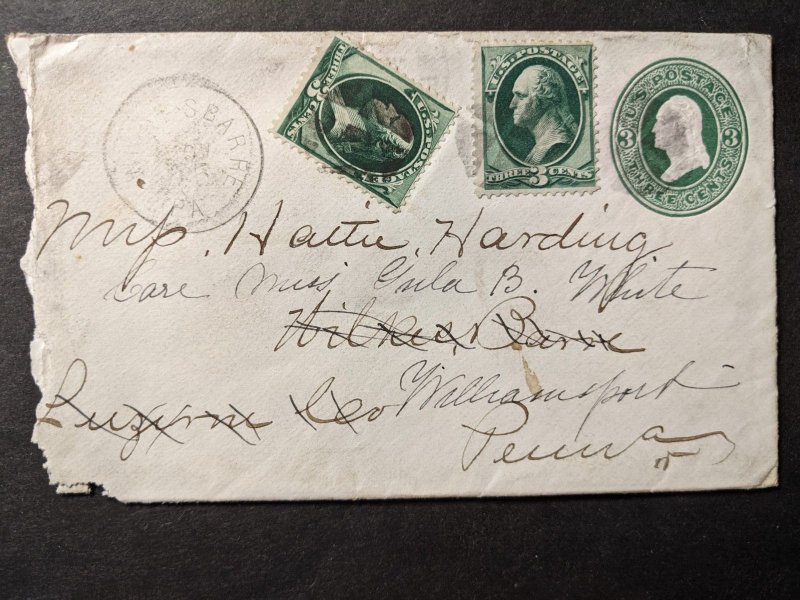 SBARRE
PA
U.S. POSTAGE
THREE CENTS
U.S. POSTAGE.
THREE 3 CENTS
U.S. POSTAGE
3 3
THREE CENTS
Miss. Hattie, Harding
Care Miss B. White
Wilkes, Barre
Luzerne Co Williamsport
Penna